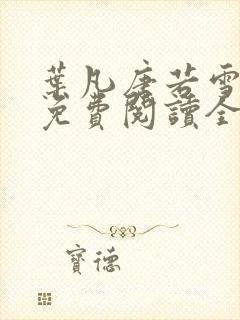 葉凡唐若雪
免費閱讀全
寶德